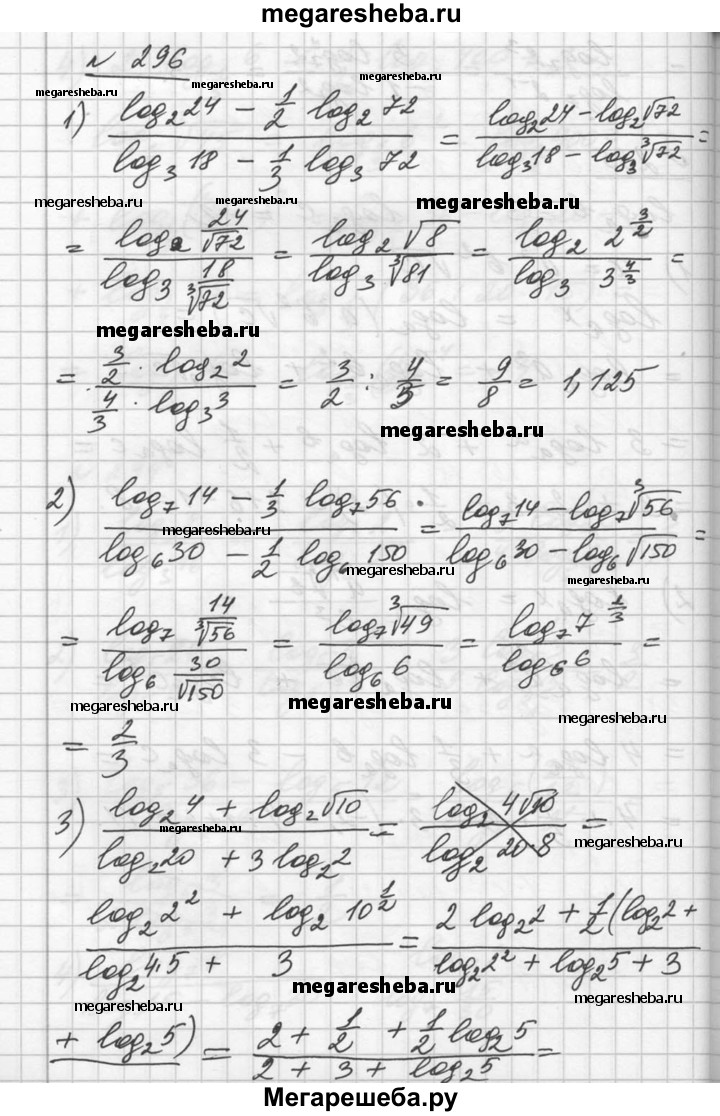 megaresheba.ru
№ 296
megaresheba.ru megaresheba.ru megaresheba.ru
1) (log₂24 − 1/2 log₂72)/(log₃18 − 1/3 log₃72) = (log₂24 − log₂√72)/(log₃18 − log₃∛72) =
megaresheba.ru megaresheba.ru megaresheba.ru
= (log₂ 24/√72)/(log₃ 18/∛72) = (log₂√8)/(log₃∛81) = (log₂ 2^(3/2))/(log₃ 3^(4/3)) =
megaresheba.ru megaresheba.ru
= (3/2 · log₂2)/(4/3 · log₃3) = 3/2 : 4/3 = 9/8 = 1,125
megaresheba.ru
2) (log₇14 − 1/3 log₇56)/(log₆30 − 1/2 log₆150) = (log₇14 − log₇∛56)/(log₆30 − log₆√150) =
megaresheba.ru megaresheba.ru megaresheba.ru
= (log₇ 14/∛56)/(log₆ 30/√150) = (log₇∛49)/(log₆6) = (log₇7^(2/3))/(log₆6) =
megaresheba.ru megaresheba.ru megaresheba.ru
= 2/3
3) (log₂4 + log₂√10)/(log₂20 + 3log₂2) = (log₂ 4√10)/(log₂ 20·8) =
megaresheba.ru megaresheba.ru
(log₂2² + log₂10^(1/2))/(log₂4·5 + 3) = (2 log₂2 + 1/2(log₂2 +)/(log₂2² + log₂5 + 3)
megaresheba.ru megaresheba.ru megaresheba.ru
+ log₂5) = (2 + 1/2 + 1/2 log₂5)/(2 + 3 + log₂5) =
Мегарешеба.ру